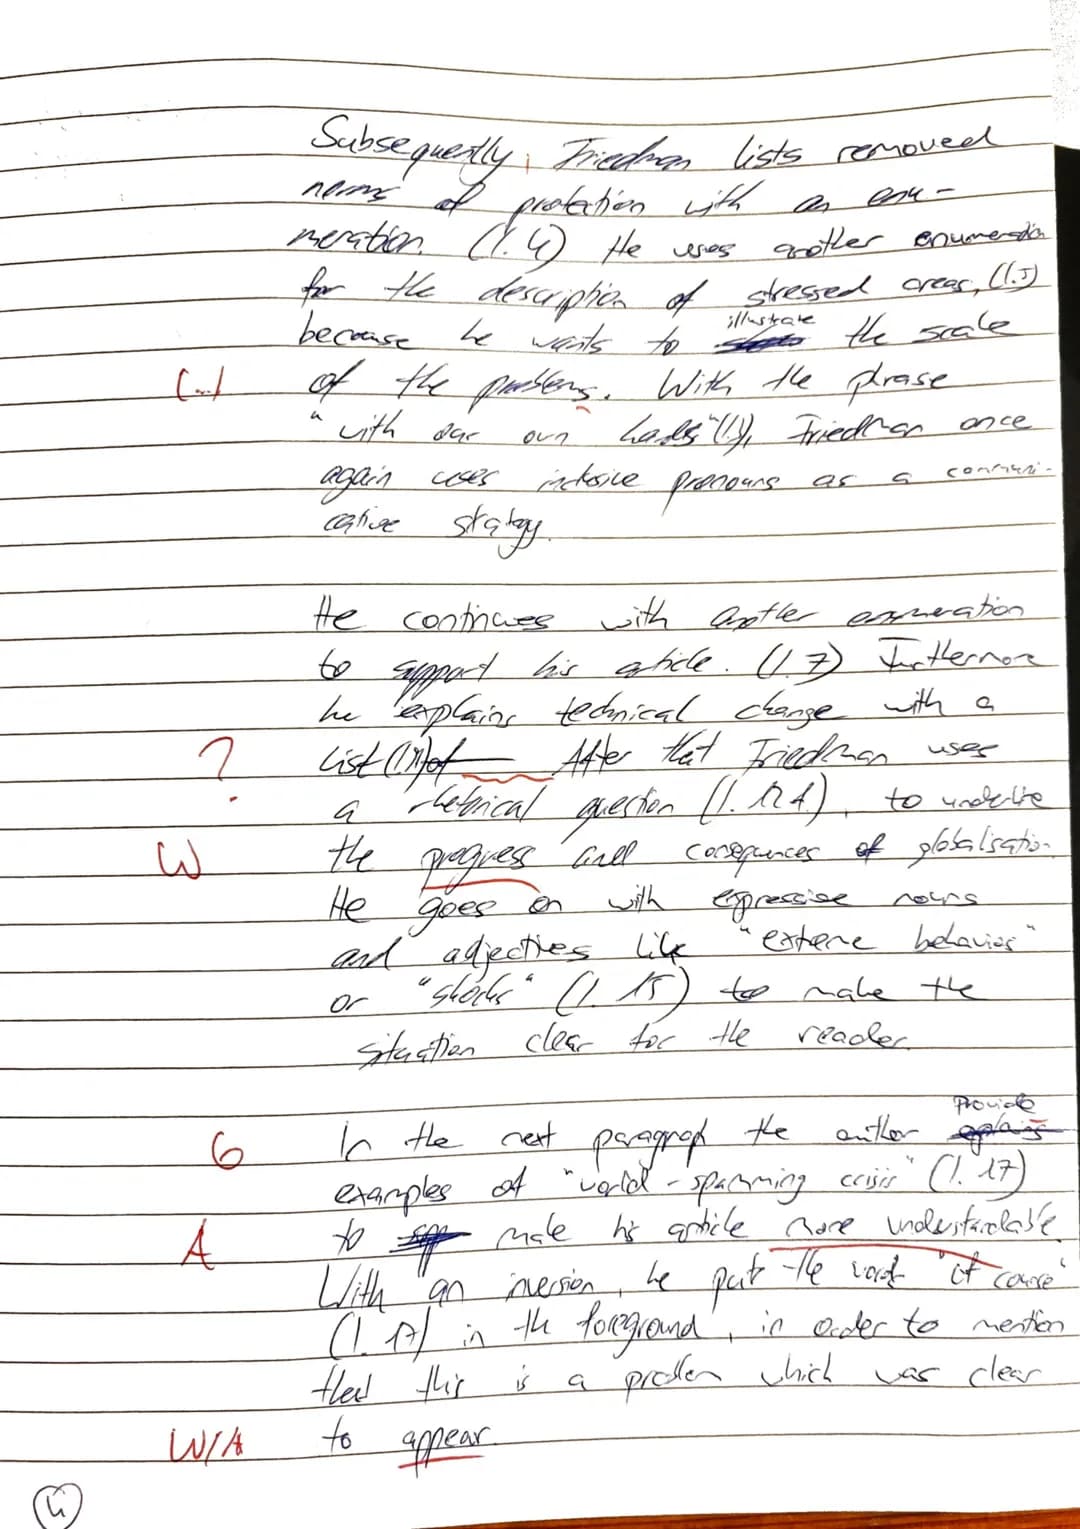 Subsequently, Friedman lists removed
norms of protection with an enu-
meration. (l. 4) He uses another enumeration
for the description of stressed areas, (l.5)
illustrate
because he wants to the scale
(...) of the problems. With the phrase
"with our own hands" (l.), Friedman once
again uses inclusive pronouns as a communi-
cative stratgy.
He continues with another enumeration
to support his article. (l. 7) Furthermore
he explains technical change with a
? list of After that Friedman uses
a rhetorical question (l. 12 f.), to underline
W the progress and consequences of globalisation.
He goes on with expressive nouns
and adjectives like "extreme behavior"
or "shocks" (l. 15) to make the
situation clear for the reader.
Provide
G In the next paragraph the author
examples of "world-spanning crisis" (l. 17)
A to make his article more understandable.
With an inversion, he put the word "of course"
(l. 17) in the foreground, in order to mention
that this is a problem which was clear
W/A to appear.
4